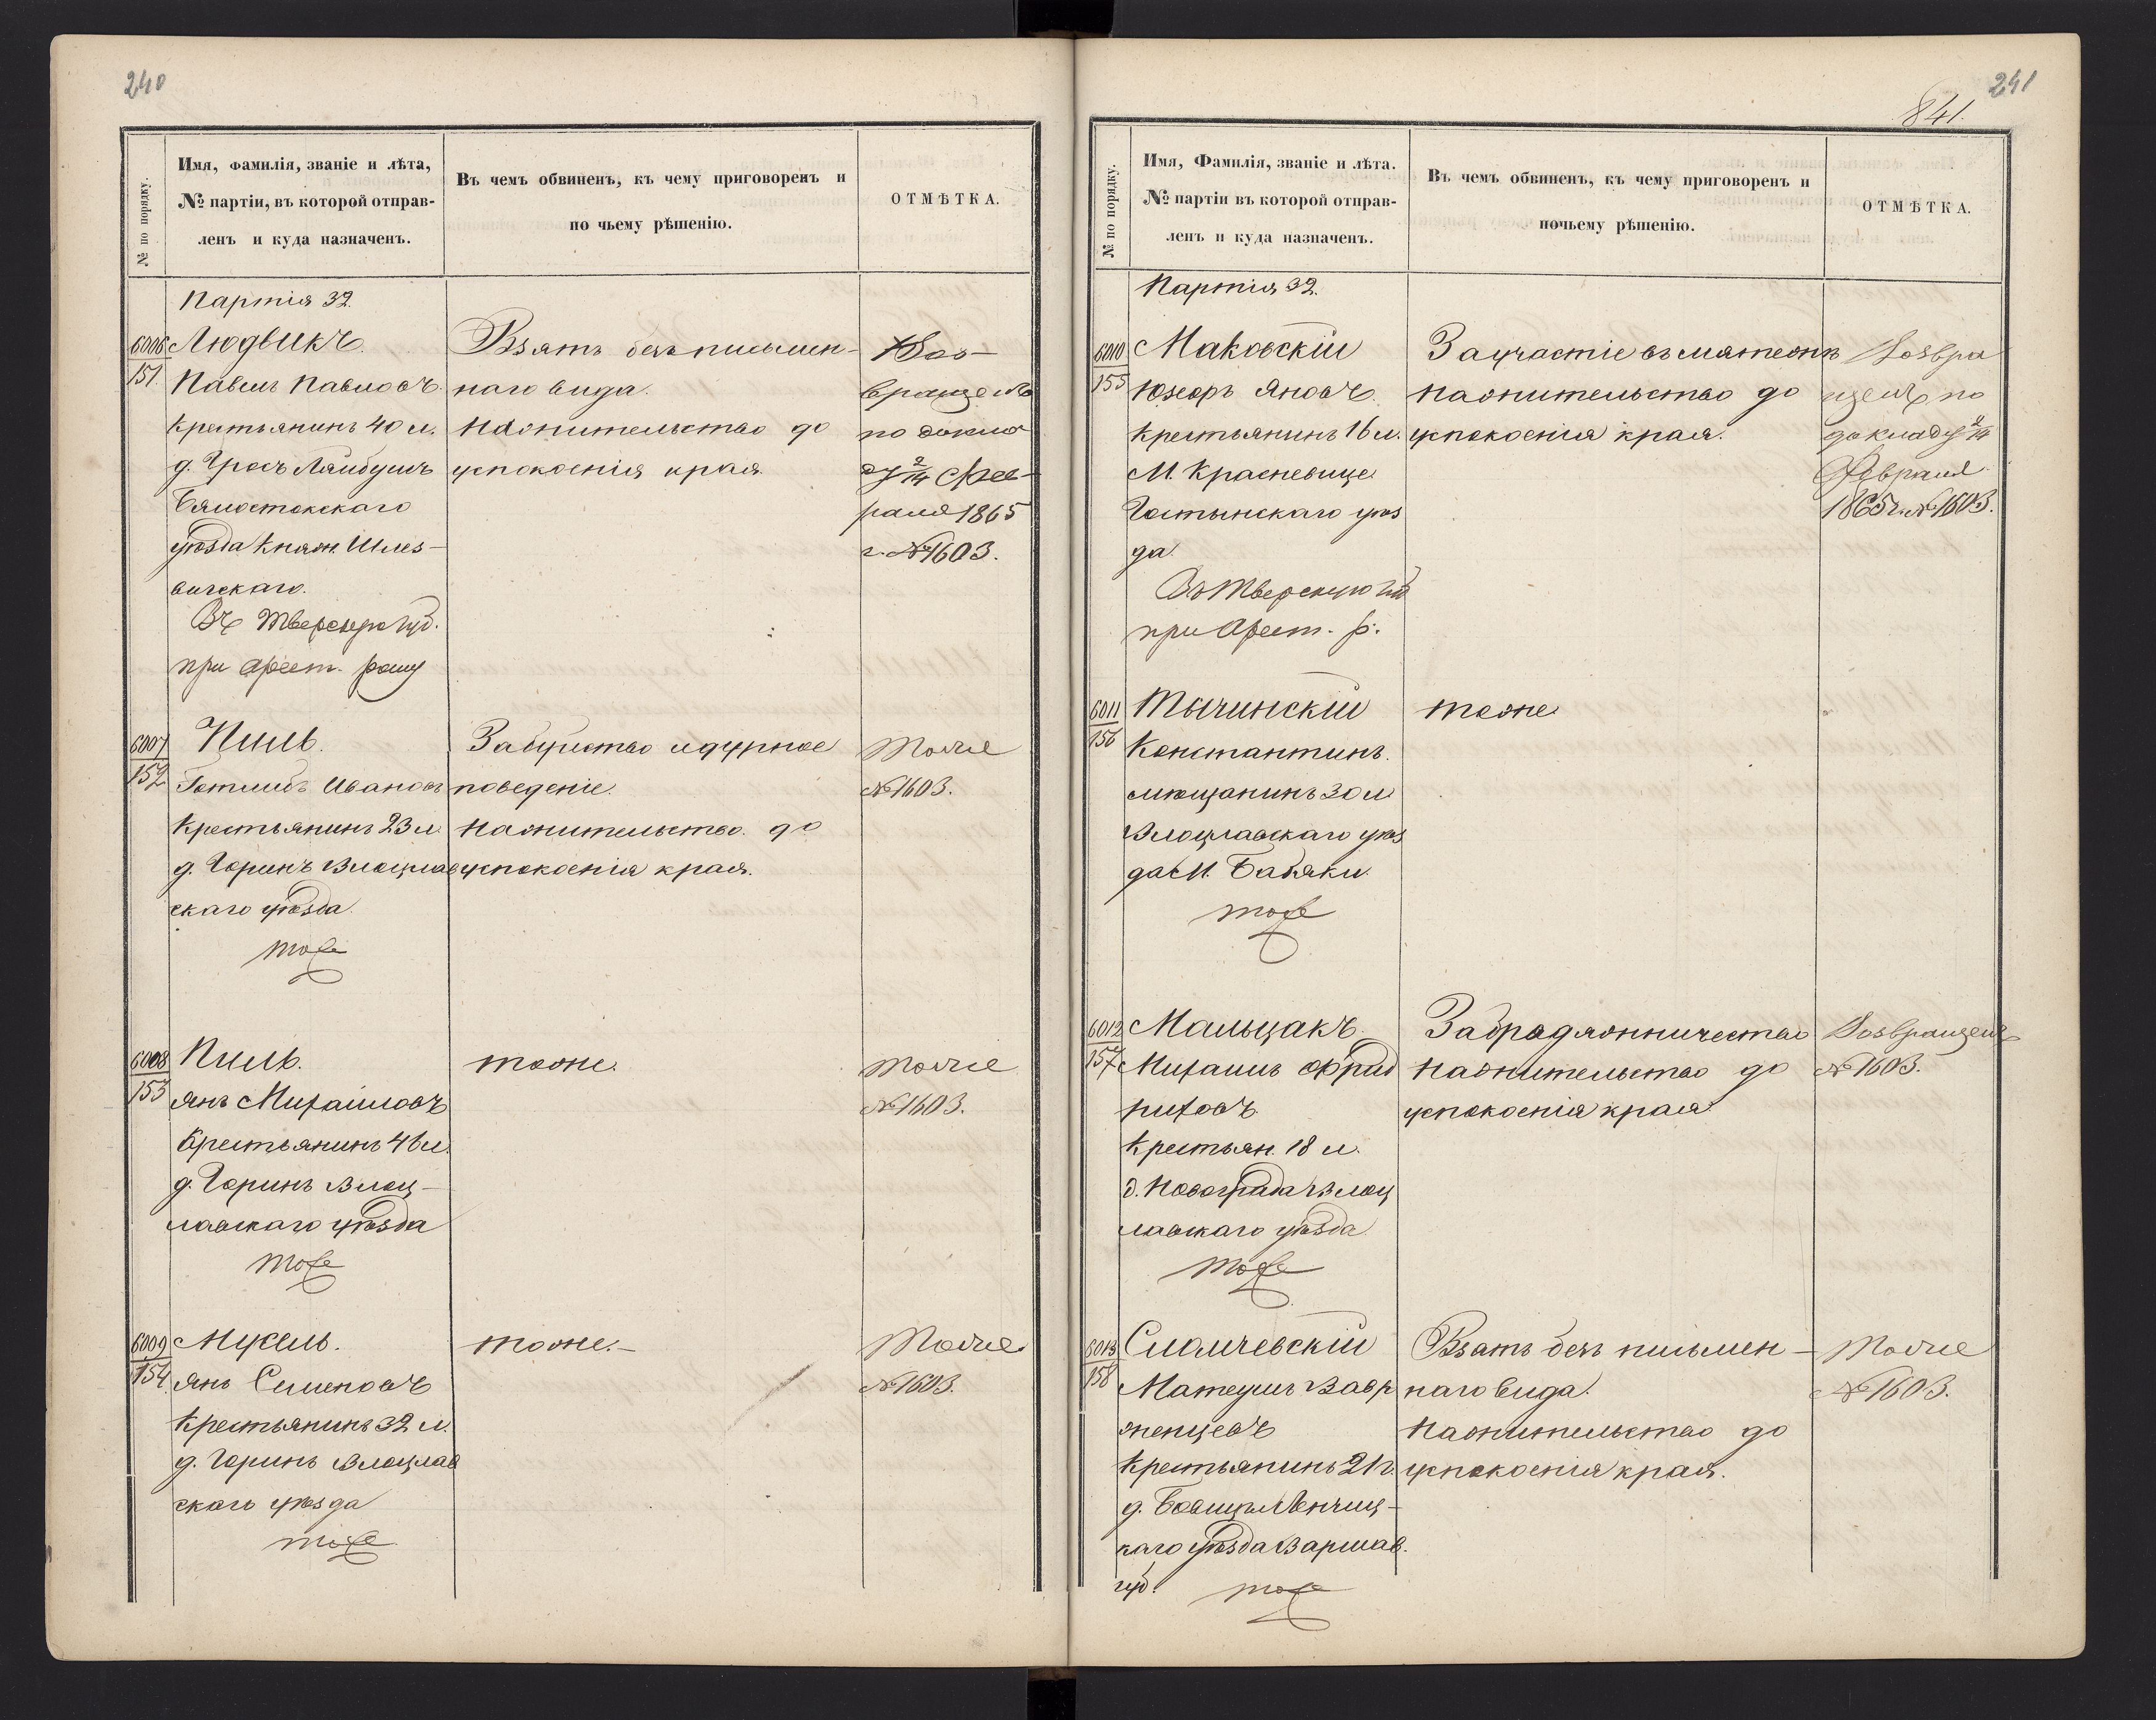 240
№ по порядку.
Имя, фамилія, званіе и лѣта,
№ партіи, въ которой отправ-
ленъ и куда назначенъ.
Въ чемъ обвиненъ, къ чему приговоренъ и
по чьему рѣшенію.
ОТМѢТКА.
Партія 32.
6006
151.
Людвикъ.
Павелъ Павловъ.
Крестьянинъ 40 л.
д. Гросъ Ляйбушъ
Бялостокскаго
уѣзда Княж. Шлез-
вигскаго.
Въ Тверскую губ.
при арест. роту
Взятъ безъ письмен-
наго вида.
На жительство до
успокоенія края
Воз-
вращенъ
по докла
ду 2/14 Фев-
раля 1865
г. № 1603.
6007
152
Пиль.
Готлибъ Ивановъ
Крестьянинъ 23 л.
д. Горинь Влоцлав
скаго уѣзда.
тоже
За буйство и дурное
поведеніе.
На жительство до
успокоенія края.
Тоже
№ 1603.
6008
153
Пиль.
Янъ Михайловъ
Крестьянинъ 46 л.
д. Горинь Влоц-
лавскаго уѣзда
тоже
тоже.
тоже
№ 1603.
6009
154
Мукель.
Янъ Семеновъ
Крестьянинъ 32 л.
д. Горинь Влоцлав
скаго уѣзда
тоже
тоже.-
Тоже
№ 1603.
241
841.
№ по порядку.
Имя, Фамилія, званіе и лѣта.
№ партіи въ которой отправ-
ленъ и куда назначенъ.
Въ чемъ обвиненъ, къ чему приговоренъ и
почьему рѣшенію.
ОТМѢТКА.
Партія 32.
6010
155
Маковскій
Юзефъ Яновъ.
Крестьянинъ 16 л.
М. Красневице
Гостынскаго уѣз
да.
Въ Тверскую губ
при Арест. р.
За участіе въ мятежѣ
на жительство до
успокоенія края.
Возвра
щенъ по
докладу 2/14
Февраля
1865 г. № 1603.
6011
156
Тычинскій
Константинъ.
мѣщанинъ 30 л
Влоцлавскаго уѣз
да М. Бабяки.
тоже
тоже
6012
157
Мальцакъ.
Михаилъ Фрид
риховъ.
Крестьян. 18 л.
д. Новограда Влоц
лавскаго уѣзда
тоже
За бродяжничество
на жительство до
успокоенія края.
Возвращенъ
№ 1603.
6013
158
Мат᠎еушъ Вавр
женцевъ
Крестьянинъ 21 г.
каго уѣзда Варшав.
губ. тоже
Взятъ безъ письмен-
наго вида.
На жительство до
успокоенія края.
Тоже
№ 1603.